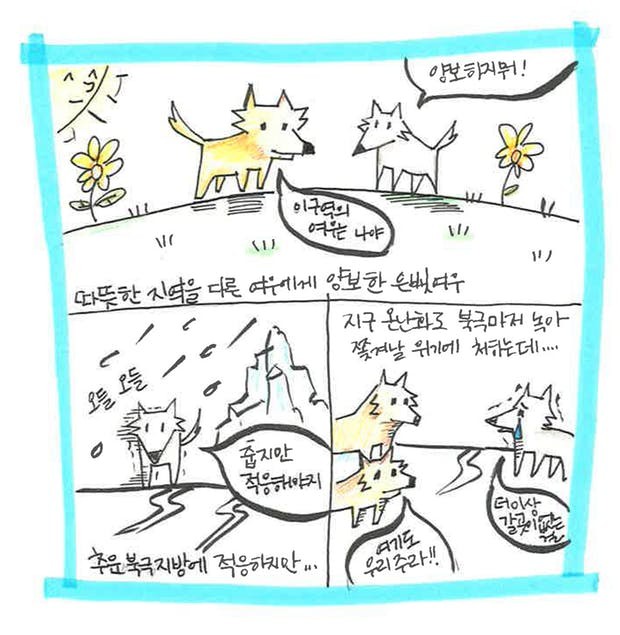 양보하지뭐!
이구역의
여우는 나야
따뜻한 지역을 다른 여우에게 양보한 은빛여우
오들 오들
춥지만
적응해야지
추운 북극지방에 적응하지만...
지구 온난화로 북극마저 녹아
쫓겨날 위기에 처하는데....
여기도
우리 주라!!
더이상
갈곳이 없는
걸